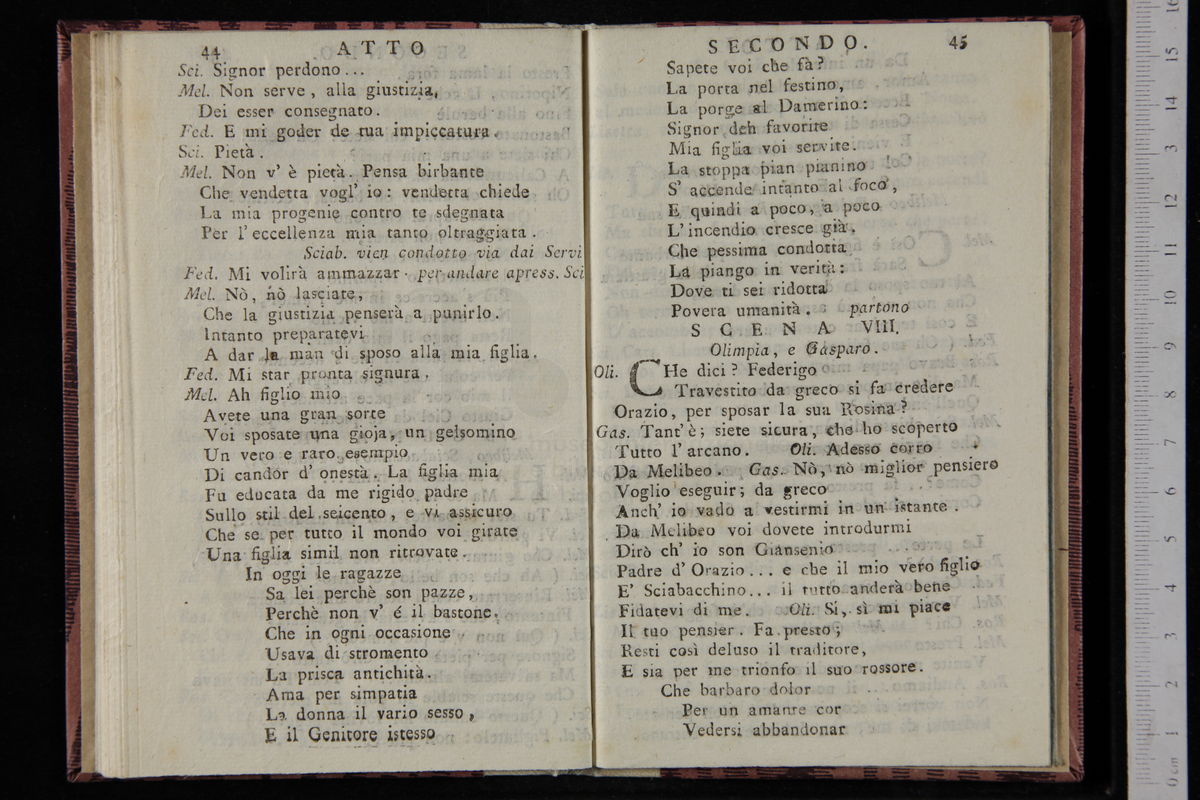 44 ATTO
Sci. Signor perdono...
Mel. Non serve, alla giustizia,
Dei esser consegnato.
Fed. E mi goder de tua impiccatura.
Sci. Pietà.
Mel. Non v' è pietà. Pensa birbante
Che vendetta vogl' io: vendetta chiede
La mia progenie contro te sdegnata
Per l'eccellenza mia tanto oltraggiata.
Sciab. vien condotto via dai Servi
Fed. Mi volirà ammazzar. per andare apress. Sci
Mel. Nò, nò lasciate,
Che la giustizia penserà a punirlo.
Intanto preparatevi
A dar la man di sposo alla mia figlia.
Fed. Mi star pronta signura.
Mel. Ah figlio mio
Avete una gran sorte
Voi sposate una gioja, un gelsomino
Un vero e raro esempio
Di candor d' onestà. La figlia mia
Fu educata da me rigido padre
Sullo stil del seicento, e vi assicuro
Che se per tutto il mondo voi girate
Una figlia simil non ritrovate.
In oggi le ragazze
Sa lei perchè son pazze,
Perchè non v' é il bastone.
Che in ogni occasione
Usava di stromento
La prisca antichità.
Ama per simpatia
La donna il vario sesso,
E il Genitore istesso
SECONDO. 45
Sapete voi che fà?
La porta nel festino,
La porge al Damerino:
Signor deh favorite
Mia figlia voi servite.
La stoppa pian pianino
S' accende intanto al foco,
E quindi a poco, a poco
L' incendio cresce già.
Che pessima condotta
La piango in verità:
Dove ti sei ridotta
Povera umanità. partono
SCENA VIII.
Olimpia, e Gasparo.
Oli. CHe dici? Federigo
Travestito da greco si fa credere
Orazio, per sposar la sua Rosina?
Gas. Tant' è; siete sicura, che ho scoperto
Tutto l' arcano. Oli. Adesso corro
Da Melibeo. Gas. Nò, nò miglior pensiero
Voglio eseguir; da greco
Anch' io vado a vestirmi in un istante.
Da Melibeo voi dovete introdurmi
Dirò ch' io son Giansenio
Padre d' Orazio... e che il mio vero figlio
E' Sciabacchino... il tutto anderà bene
Fidatevi di me. Oli. Si, sì mi piace
Il tuo pensier. Fa presto;
Resti così deluso il traditore,
E sia per me trionfo il suo rossore.
Che barbaro dolor
Per un amante cor
Vedersi abbandonar
0 cm 1 2 3 4 5 6 7 8 9 10 11 12 13 14 15 16